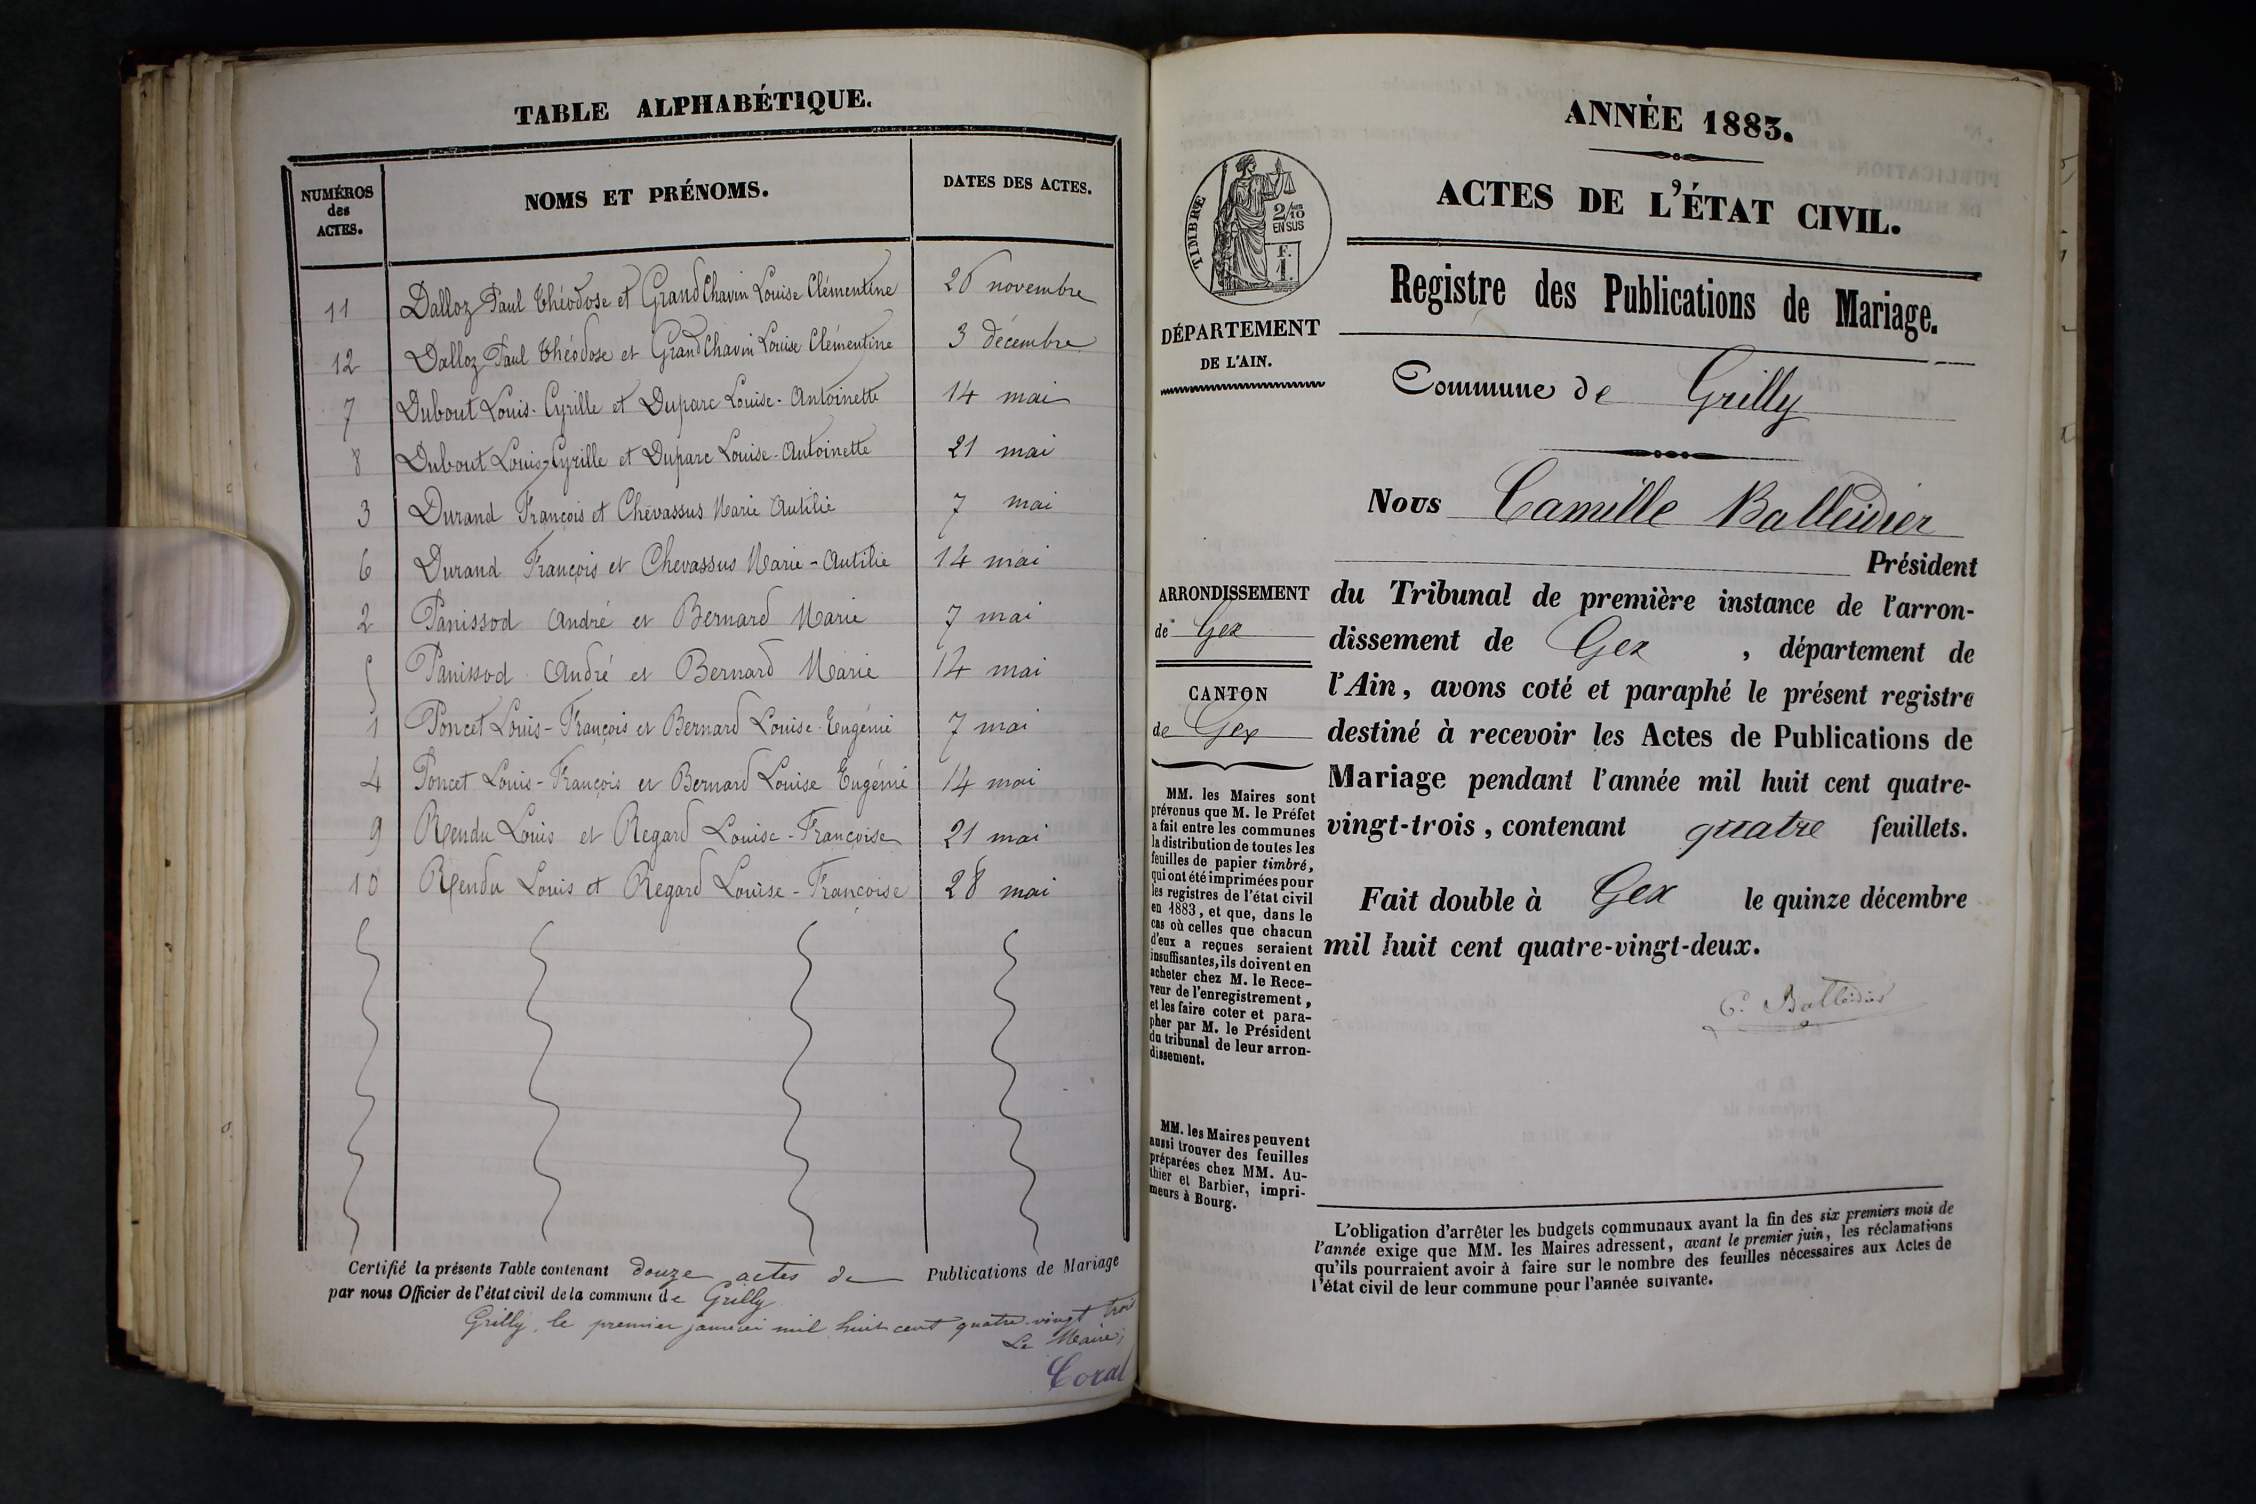 TABLE ALPHABÉTIQUE.
NUMÉROS des ACTES. NOMS ET PRÉNOMS. DATES DES ACTES.
11 Dalloz Paul Théodose et GrandChavin Louise Clémentine 26 novembre
12 Dalloz Paul Théodose et GrandChavin Louise Clémentine 3 décembre
7 Dubout Louis-Cyrille et Duparc Louise-Antoinette 14 mai
8 Dubout Louis-Cyrille et Duparc Louise-Antoinette 21 mai
3 Durand François et Chevassus Marie Autilie 7 mai
6 Durand François et Chevassus Marie-Autilie 14 mai
2 Panissod André et Bernard Marie 7 mai
5 Panissod André et Bernard Marie 14 mai
1 Poncet Louis-François et Bernard Louise-Eugénie 7 mai
4 Poncet Louis-François et Bernard Louise Eugénie 14 mai
9 Rendu Louis et Regard Louise-Françoise 21 mai
10 Rendu Louis et Regard Louise-Françoise 28 mai
Certifié la présente Table contenant douze actes de Publications de Mariage
par nous Officier de l'état civil de la commune de Grilly
Grilly, le premier janvier mil huit cent quatre-vingt trois
Le Maire,
ANNÉE 1883.
ACTES DE L'ÉTAT CIVIL.
Registre des Publications de Mariage.
TIMBRE
2/10
EN SUS
F.
1.
DÉPARTEMENT
DE L'AIN.
Commune de Grilly
Nous Camille Balleidier
Président
ARRONDISSEMENT
de Gex
CANTON
de Gex
du Tribunal de première instance de l'arron-
dissement de Gex, département de
l'Ain, avons coté et paraphé le présent registre
destiné à recevoir les Actes de Publications de
Mariage pendant l'année mil huit cent quatre-
vingt-trois, contenant quatre feuillets.
Fait double à Gex le quinze décembre
mil huit cent quatre-vingt-deux.
C. Balleidier
MM. les Maires sont
prévenus que M. le Préfet
a fait entre les communes
la distribution de toutes les
feuilles de papier timbré,
qui ont été imprimées pour
les registres de l'état civil
en 1883, et que, dans le
cas où celles que chacun
d'eux a reçues seraient
insuffisantes, ils doivent en
acheter chez M. le Rece-
veur de l'enregistrement,
et les faire coter et para-
pher par M. le Président
du tribunal de leur arron-
dissement.
MM. les Maires peuvent
aussi trouver des feuilles
préparées chez MM. Au-
thier et Barbier, impri-
meurs à Bourg.
L'obligation d'arrêter les budgets communaux avant la fin des six premiers mois de
l'année exige que MM. les Maires adressent, avant le premier juin, les réclamations
qu'ils pourraient avoir à faire sur le nombre des feuilles nécessaires aux Actes de
l'état civil de leur commune pour l'année suivante.